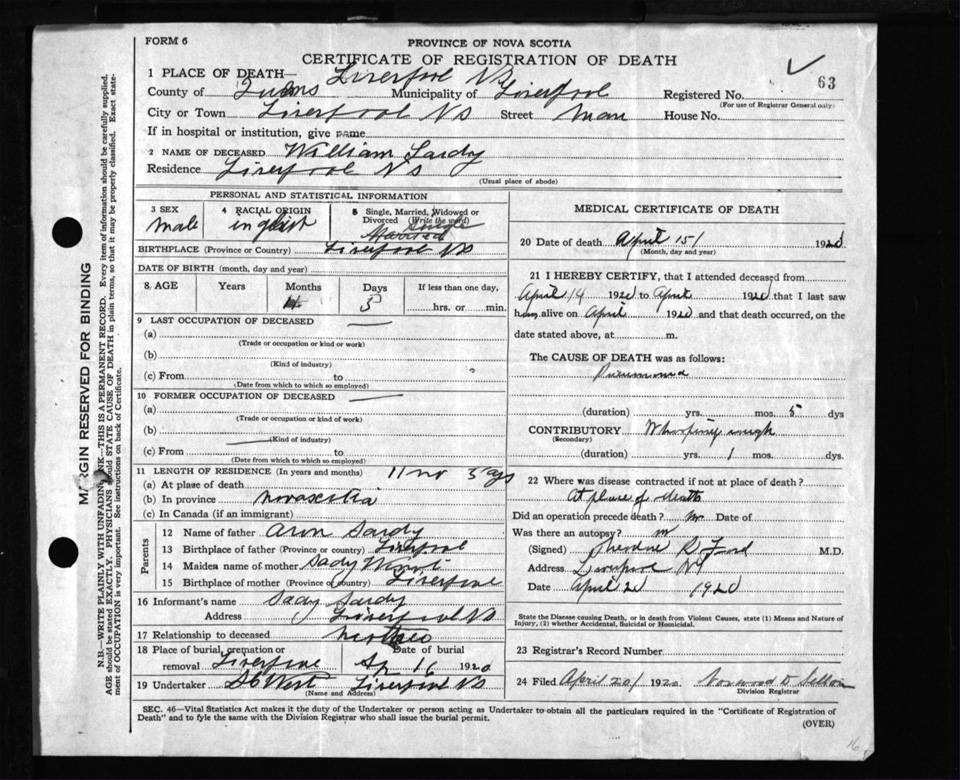 FORM 6
PROVINCE OF NOVA SCOTIA
CERTIFICATE OF REGISTRATION OF DEATH
63
1 PLACE OF DEATH— Liverpool NS
County of Municipality of Liverpool Registered No.
(For use of Registrar General only)
City or Town Liverpool NS Street Main House No.
If in hospital or institution, give name
2 NAME OF DECEASED William Sardy
Residence Liverpool NS
(Usual place of abode)
PERSONAL AND STATISTICAL INFORMATION
3 SEX male
4 RACIAL ORIGIN english
5 Single, Married, Widowed or Divorced (Write the word) Single
BIRTHPLACE (Province or Country) Liverpool NS
DATE OF BIRTH (month, day and year)
8. AGE Years Months Days If less than one day,
hrs. or min.
9 LAST OCCUPATION OF DECEASED
(a)
(Trade or occupation or kind or work)
(b)
(Kind of industry)
(c) From to
(Date from which to which so employed)
10 FORMER OCCUPATION OF DECEASED
(a)
(Trade or occupation or kind of work)
(b)
(Kind of industry)
(c) From to
(Date from which to which so employed)
11 LENGTH OF RESIDENCE (In years and months)
(a) At place of death
(b) In province novascotia
(c) In Canada (if an immigrant)
Parents
12 Name of father Sardy
13 Birthplace of father (Province or country) Liverpool
14 Maiden name of mother Sady
15 Birthplace of mother (Province or Country) Liverpool
16 Informant's name Sady Sardy
Address Liverpool NS
17 Relationship to deceased
18 Place of burial, cremation or removal Liverpool
Date of burial Ap 16 1920
19 Undertaker West Liverpool NS
(Name and Address)
MEDICAL CERTIFICATE OF DEATH
20 Date of death April 15/ 1920
(Month, day and year)
21 I HEREBY CERTIFY, that I attended deceased from
April 14 1920 to April 1920 that I last saw
him alive on April 1920 and that death occurred, on the
date stated above, at m.
The CAUSE OF DEATH was as follows:
Pneumonia
(duration) yrs. mos. 5 dys
CONTRIBUTORY Whooping cough
(Secondary)
(duration) yrs. 1 mos. dys.
22 Where was disease contracted if not at place of death?
At place of death
Did an operation precede death? no Date of
Was there an autopsy? no
(Signed) Ford M.D.
Address Liverpool NS
Date April 20 1920
State the Disease causing Death, or in death from Violent Causes, state (1) Means and Nature of Injury, (2) whether Accidental, Suicidal or Homicidal.
23 Registrar's Record Number
24 Filed April 20/ 1920
Division Registrar
SEC. 46—Vital Statistics Act makes it the duty of the Undertaker or person acting as Undertaker to obtain all the particulars required in the "Certificate of Registration of
Death" and to fyle the same with the Division Registrar who shall issue the burial permit.
(OVER)
16
MARGIN RESERVED FOR BINDING
N.B.—WRITE PLAINLY WITH UNFADING INK—THIS IS A PERMANENT RECORD. Every item of information should be carefully supplied.
AGE should be stated EXACTLY. PHYSICIANS should STATE CAUSE OF DEATH in plain terms, so that it may be properly classified. Exact state-
ment of OCCUPATION is very important. See instructions on back of Certificate.